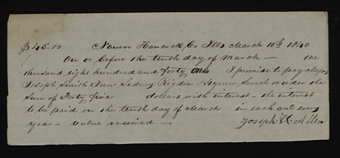 $45.00 Nauvoo Hancock Co Ills March 10th 1840
On or before the tenth day of March — one
thousand eight hundred and forty one I promise to pay
Joseph Smith Sidney Rigdon Hyrum Smith or order the
Sum of Forty five dollars with interest — the interest
to be paid on the tenth day of March in each and every
year — value received —
Joseph